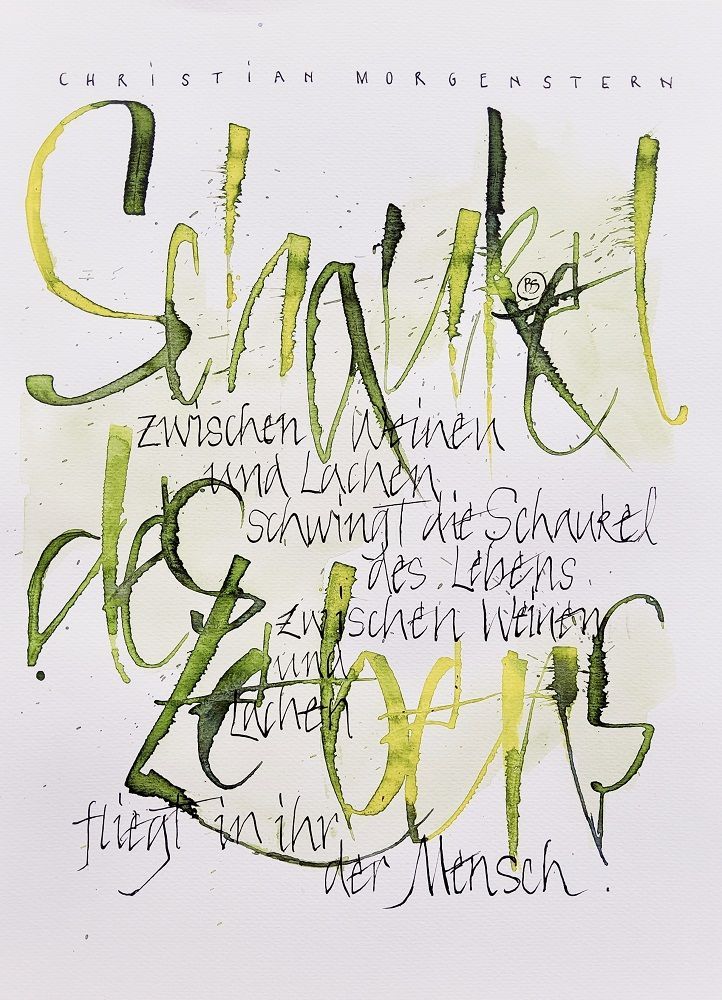 CHRiSTiAN MORGENSTERN
Schaukel
BS
zwischen Weinen
und Lachen
schwingt die Schaukel
des Lebens
des Lebens.
zwischen Weinen
und
Lachen
fliegt in ihr
der Mensch.